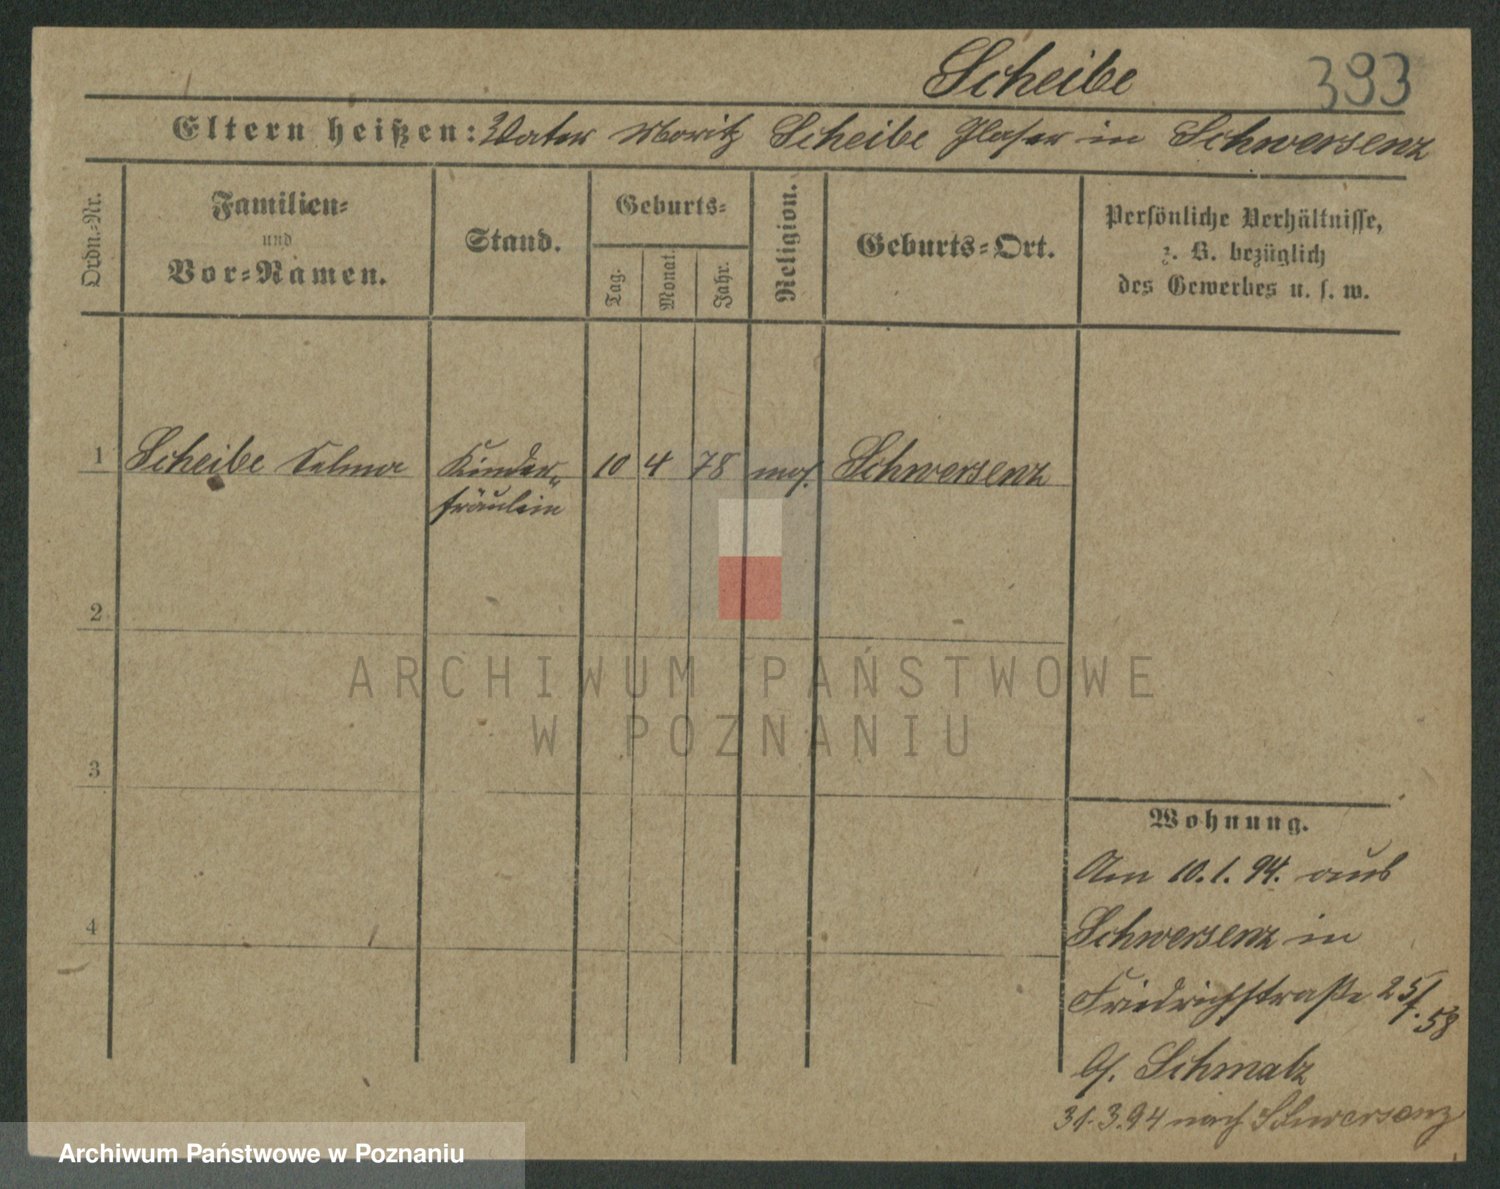 Scheibe 393
Eltern heißen: Vater Moritz Scheibe Glaser in Schwersenz
Ordn.-Nr.
Familien-
und
Vor-Namen.
Stand.
Geburts-
Tag.
Monat.
Jahr.
Religion.
Geburts-Ort.
Persönliche Verhältnisse,
z. B. bezüglich
des Gewerbes u. s. w.
1 Scheibe Selma Kinder- 10 4 78 mos. Schwersenz
fräulein
2
3
4
Wohnung.
Am 10.1.94. aus
Schwersenz in
Friedrichstraße 25/
58
b/. Schmalz
31.3.94 nach Schwersenz
ARCHIWUM PAŃSTWOWE
W POZNANIU
Archiwum Państwowe w Poznaniu